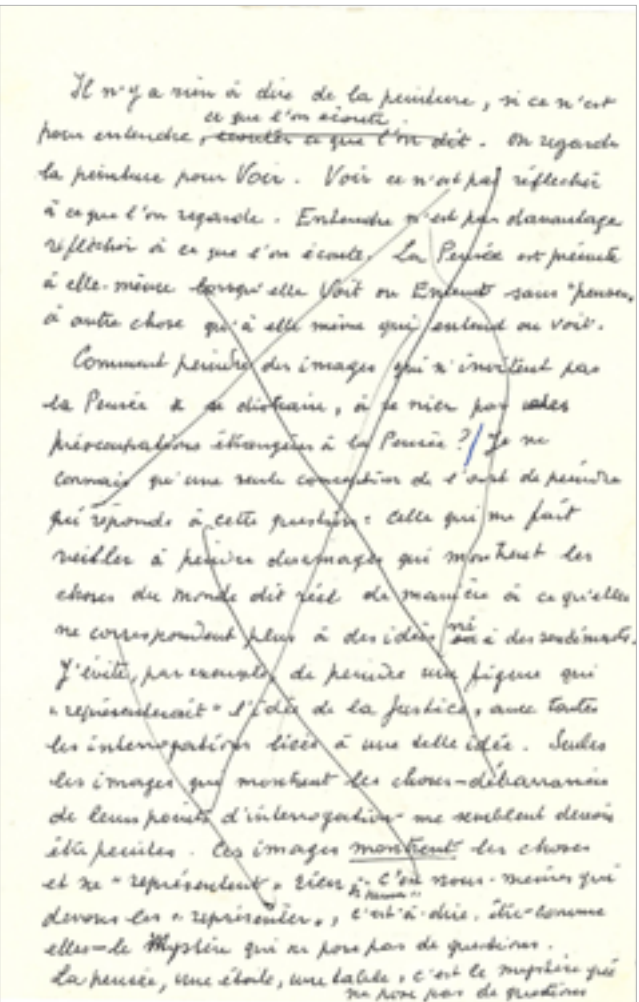 Il n'y a rien à dire de la peinture, si ce n'est
ce que l'on écoute.
pour entendre, écouter ce que l'on dit. On regarde
la peinture pour Voir. Voir ce n'est pas réfléchir
à ce que l'on regarde. Entendre n'est pas davantage
réfléchir à ce que l'on écoute. La Pensée est présente
à elle-même lorsqu'elle Voit ou Entend sans "penser"
à autre chose qu'à elle même qui entend ou voit.
Comment peindre des images qui n'invitent pas
la Pensée à se distraire, à se nier par des
préoccupations étrangères à la Pensée ? / Je ne
connais qu'une seule conception de l'art de peindre
qui réponde à cette question : celle qui me fait
veiller à peindre des images qui montrent les
choses du monde dit réel de manière à ce qu'elles
ne correspondent plus à des idées ni à des sentiments.
J'évite, par exemple, de peindre une figure qui
"représenterait" l'idée de la Justice, avec toutes
les interrogations liées à une telle idée. Seules
les images qui montrent les choses - débarrassées
de leurs points d'interrogation - me semblent devoir
être peintes. Ces images montrent les choses
et ne "représentent" rien. C'est nous-mêmes qui
devons les "représenter", c'est à dire, être - comme
elles - le Mystère qui ne pose pas de questions.
La pensée, une étoile, une table, c'est le mystère qui
ne pose pas de questions